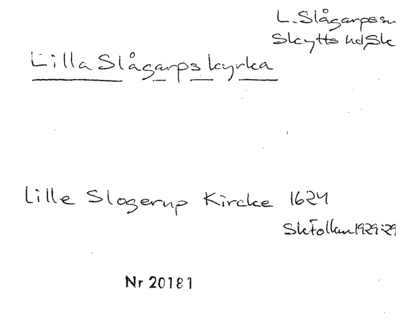 L. Slågarps sn
Skytts hd, Sk
Lilla Slågarps kyrka
Lille Slogerup Kircke 1624
Sk Folkm 1929:29
Nr 20181